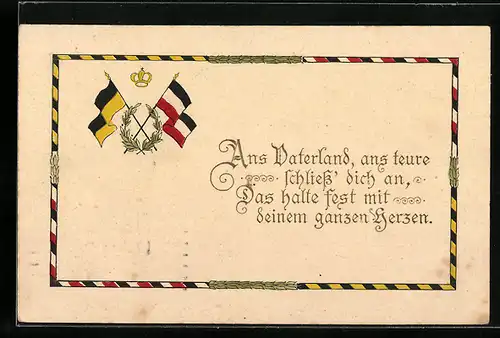 Ans Vaterland, ans teure
schließ' dich an,
Das halte fest mit
deinem ganzen Herzen.